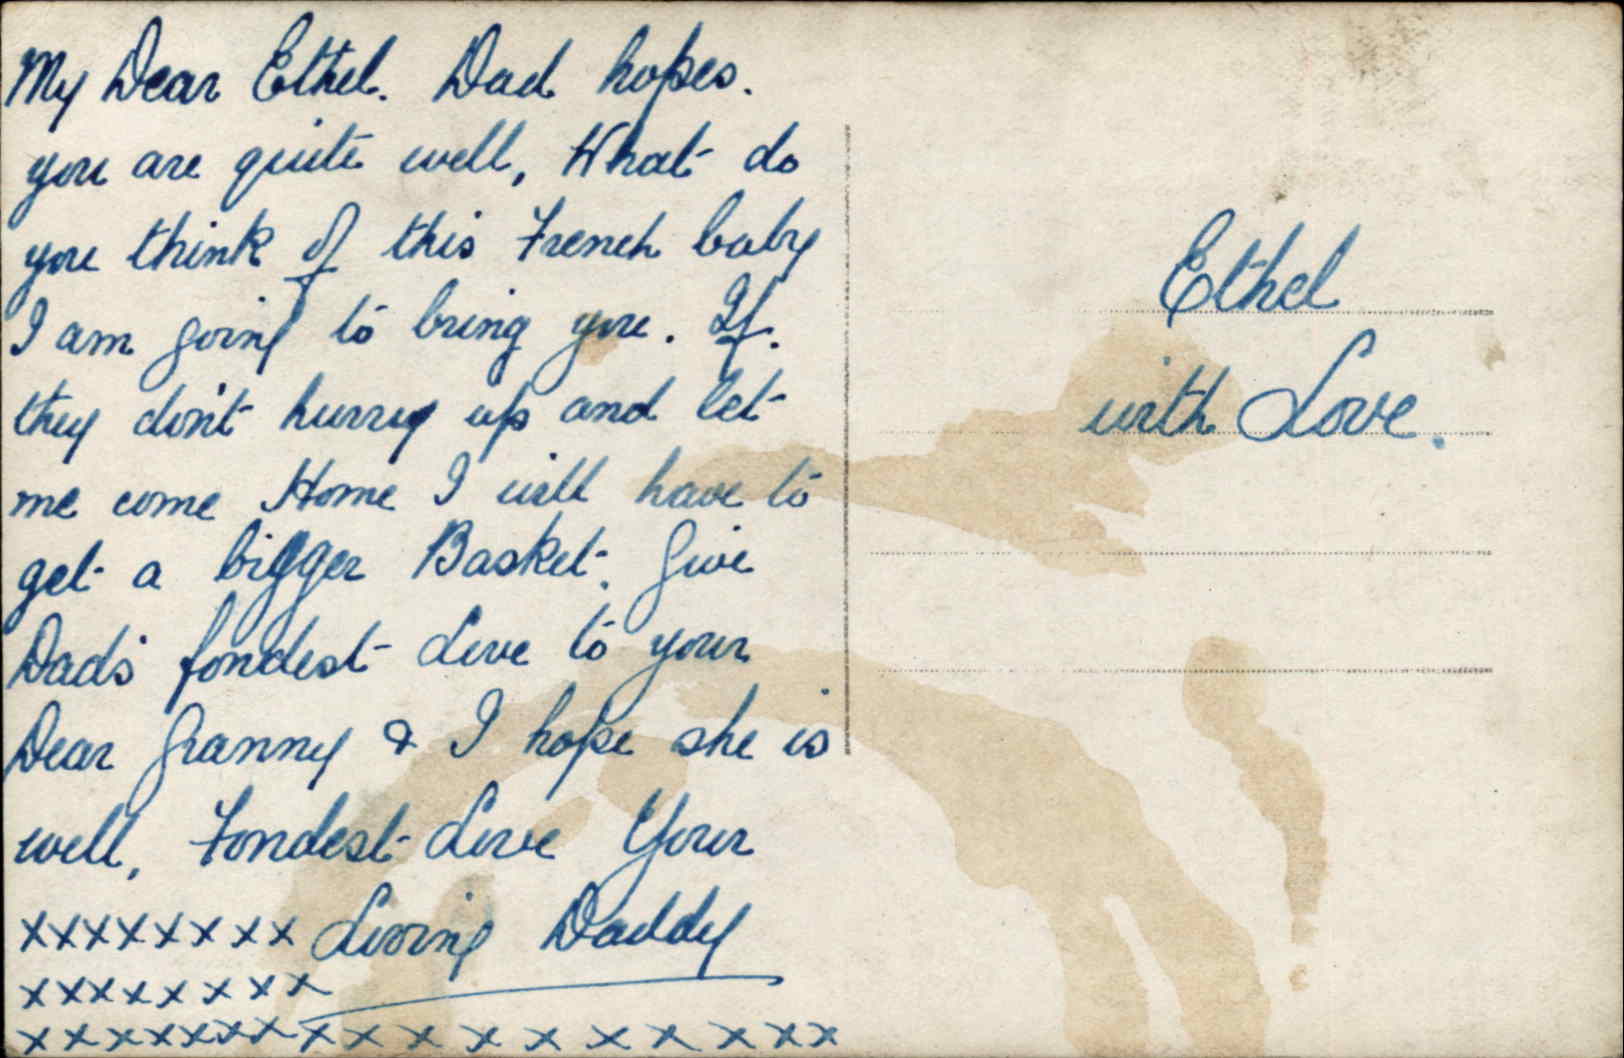 My Dear Ethel. Dad hopes.
you are quite well, What do
you think of this French baby
I am going to bring you. If.
they don't hurry up and let
me come Home I will have to
get a bigger Basket. Give
Dad's fondest Love to your
Dear Granny & I hope she is
well, Fondest Love Your
xxxxxxxx Loving Daddy
xxxxxxxx
xxxxxxxxxxxxxxxxxx
Ethel
with Love.